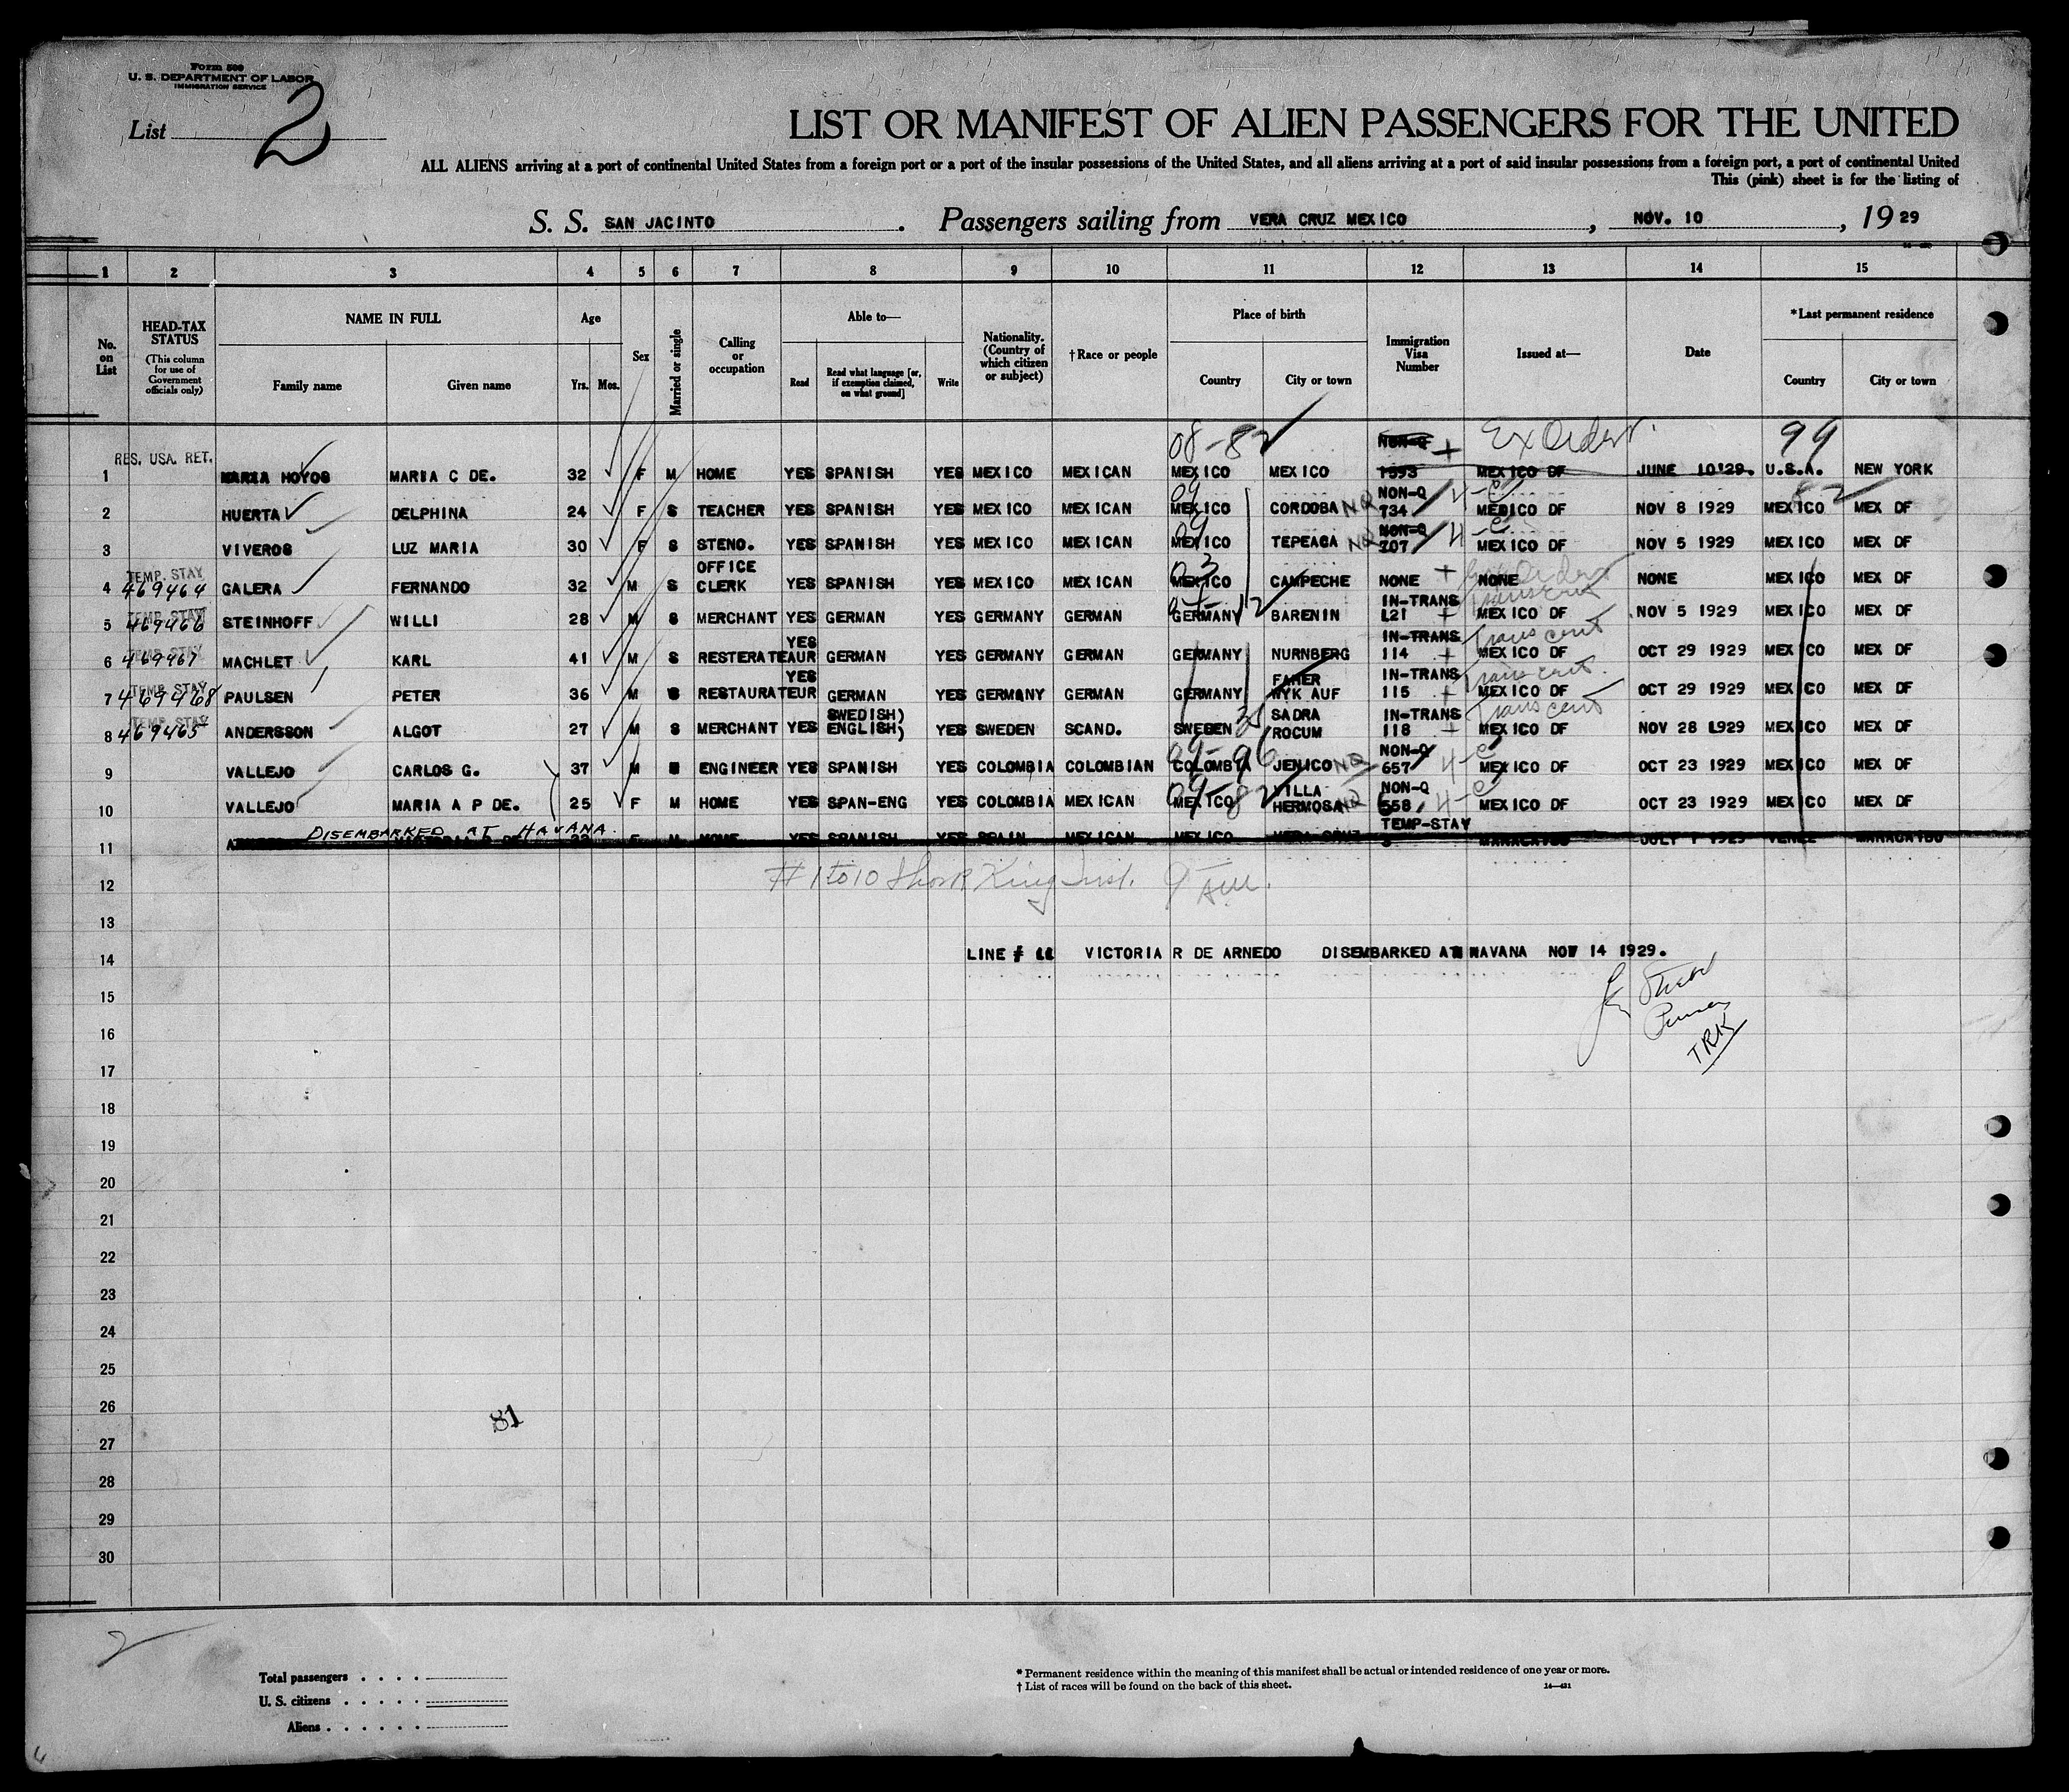 Form 500
U. S. DEPARTMENT OF LABOR
IMMIGRATION SERVICE
List 2
LIST OR MANIFEST OF ALIEN PASSENGERS FOR THE UNITED
ALL ALIENS arriving at a port of continental United States from a foreign port or a port of the insular possessions of the United States, and all aliens arriving at a port of said insular possessions from a foreign port, a port of continental United
This (pink) sheet is for the listing of
S. S. SAN JACINTO. Passengers sailing from VERA CRUZ MEXICO, NOV. 10, 1929
1 2 3 4 5 6 7 8 9 10 11 12 13 14 15
No. on List
HEAD-TAX STATUS (This column for use of Government officials only)
NAME IN FULL Family name Given name
Age Yrs. Mos.
Sex
Married or single
Calling or occupation
Able to— Read Read what language [or, if exemption claimed, on what ground] Write
Nationality. (Country of which citizen or subject)
†Race or people
Place of birth Country City or town
Immigration Visa Number
Issued at—
Date
*Last permanent residence Country City or town
08-82 NON-Q + Ex Order. 99
RES. USA. RET.
1 HOYOS MARIA C DE. 32 F M HOME YES SPANISH YES MEXICO MEXICAN MEXICO MEXICO 1593 MEXICO DF JUNE 10'29. U.S.A. NEW YORK
09 NON-Q 4-C 82
2 HUERTA DELPHINA 24 F S TEACHER YES SPANISH YES MEXICO MEXICAN MEXICO CORDOBA NQ 734 MEXICO DF NOV 8 1929 MEXICO MEX DF
09 NON-Q 4-C
3 VIVEROS LUZ MARIA 30 F S STENO. YES SPANISH YES MEXICO MEXICAN MEXICO TEPEACA NQ 707 MEXICO DF NOV 5 1929 MEXICO MEX DF
TEMP. STAY OFFICE 03
4 469464 GALERA FERNANDO 32 M S CLERK YES SPANISH YES MEXICO MEXICAN MEXICO CAMPECHE NONE + NONE NONE MEXICO MEX DF
TEMP. STAY IN-TRANS Trans cert
5 469466 STEINHOFF WILLI 28 M S MERCHANT YES GERMAN YES GERMANY GERMAN GERMANY BARENIN L21 + MEXICO DF NOV 5 1929 MEXICO MEX DF
TEMP. STAY YES IN-TRANS Trans cert
6 469467 MACHLET KARL 41 M S RESTERATEAUR GERMAN YES GERMANY GERMAN GERMANY NURNBERG 114 + MEXICO DF OCT 29 1929 MEXICO MEX DF
TEMP. STAY YES FAHER IN-TRANS Trans cert.
7 469468 PAULSEN PETER 36 M S RESTAURATEUR GERMAN YES GERMANY GERMAN GERMANY WYK AUF 115 + MEXICO DF OCT 29 1929 MEXICO MEX DF
TEMP. STAY SWEDISH) SADRA IN-TRANS Trans cent
8 469465 ANDERSSON ALGOT 27 M S MERCHANT YES ENGLISH) YES SWEDEN SCAND. SWEDEN ROCUM 118 + MEXICO DF NOV 28 L929 MEXICO MEX DF
09-96 NON-Q 4-C
9 VALLEJO CARLOS G. 37 M YES ENGINEER SPANISH YES COLOMBIA COLOMBIAN COLOMBIA JENICO NQ 657 MEXICO DF OCT 23 1929 MEXICO MEX DF
09-82 VILLA NON-Q 4-C
10 VALLEJO MARIA A P DE. 25 F M HOME YES SPAN-ENG YES COLOMBIA MEXICAN MEXICO HERMOSA NQ 658 MEXICO DF OCT 23 1929 MEXICO MEX DF
DISEMBARKED AT HAVANA. TEMP-STAY
11 F M HOME YES SPANISH YES SPAIN MEXICAN MEXICO VERA CRUZ MARACAIBO JULY 1 1929 VENEZ MARACAIBO
12 # 1 to 10
13
14 LINE # 11 VICTORIA R DE ARNEDO DISEMBARKED AT HAVANA NOV 14 1929.
15
16 Purser
17 TRK
18
19
20
21
22
23
24
25
26
81
27
28
29
30
2
Total passengers
U. S. citizens
Aliens
* Permanent residence within the meaning of this manifest shall be actual or intended residence of one year or more.
† List of races will be found on the back of this sheet.
14—421